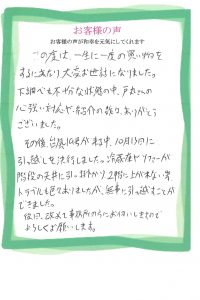 お客様の声
お客様の声が和幸を元気にしてくれます
この度は、一生に一度の買い物を
するにあたり大変お世話になりました。
下調べも不十分な状態の中、戸丸さんの
心強い対応や、紹介の数々、ありがとう
ございました。
その後台風19号が来る中、10月13日に
引っ越しを決行しました。冷蔵庫やソファーが
階段の天井に引っ掛かり、2階に上がれない等
トラブルも色々ありましたが、無事に引っ越すことが
できました。
後日、改めて事務所の方にお伺いしますので
よろしくお願いします。